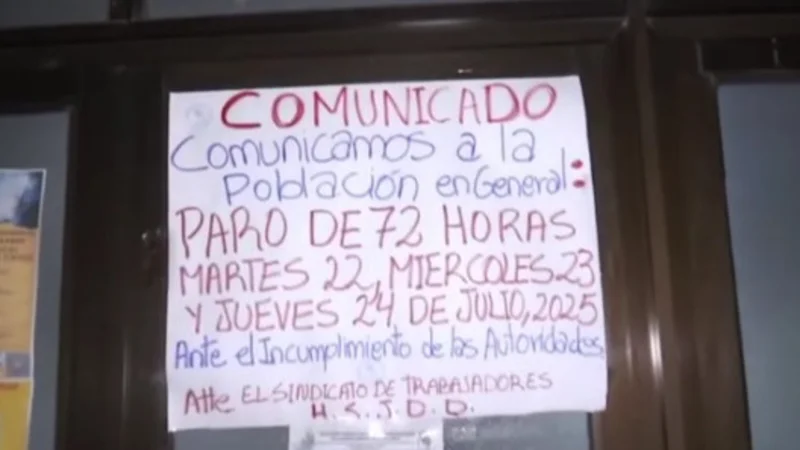 COMUNICADO
Comunicamos a la
Población en General:
PARO DE 72 HORAS
MARTES 22, MIERCOLES 23
Y JUEVES 24 DE JULIO, 2025
Ante el Incumplimiento de las Autoridades
Atte EL SINDICATO DE TRABAJADORES
H.S.J.D.D.